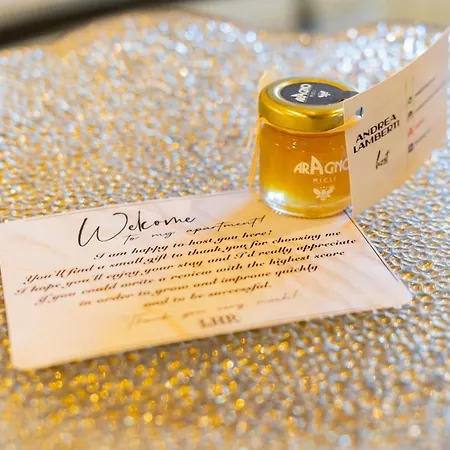 Welcome
to my apartment!
I am happy to host you here!
You'll find a small gift to thank you for choosing me
I hope you'll enjoy your stay and I'd really appreciate
if you could write a review with the highest score
in order to grow and improve quickly
and to be successful.
Thank you very much!
LHR
ARAGNO
MIELI
ARAGNO
ANDREA
LAMBERTI
host